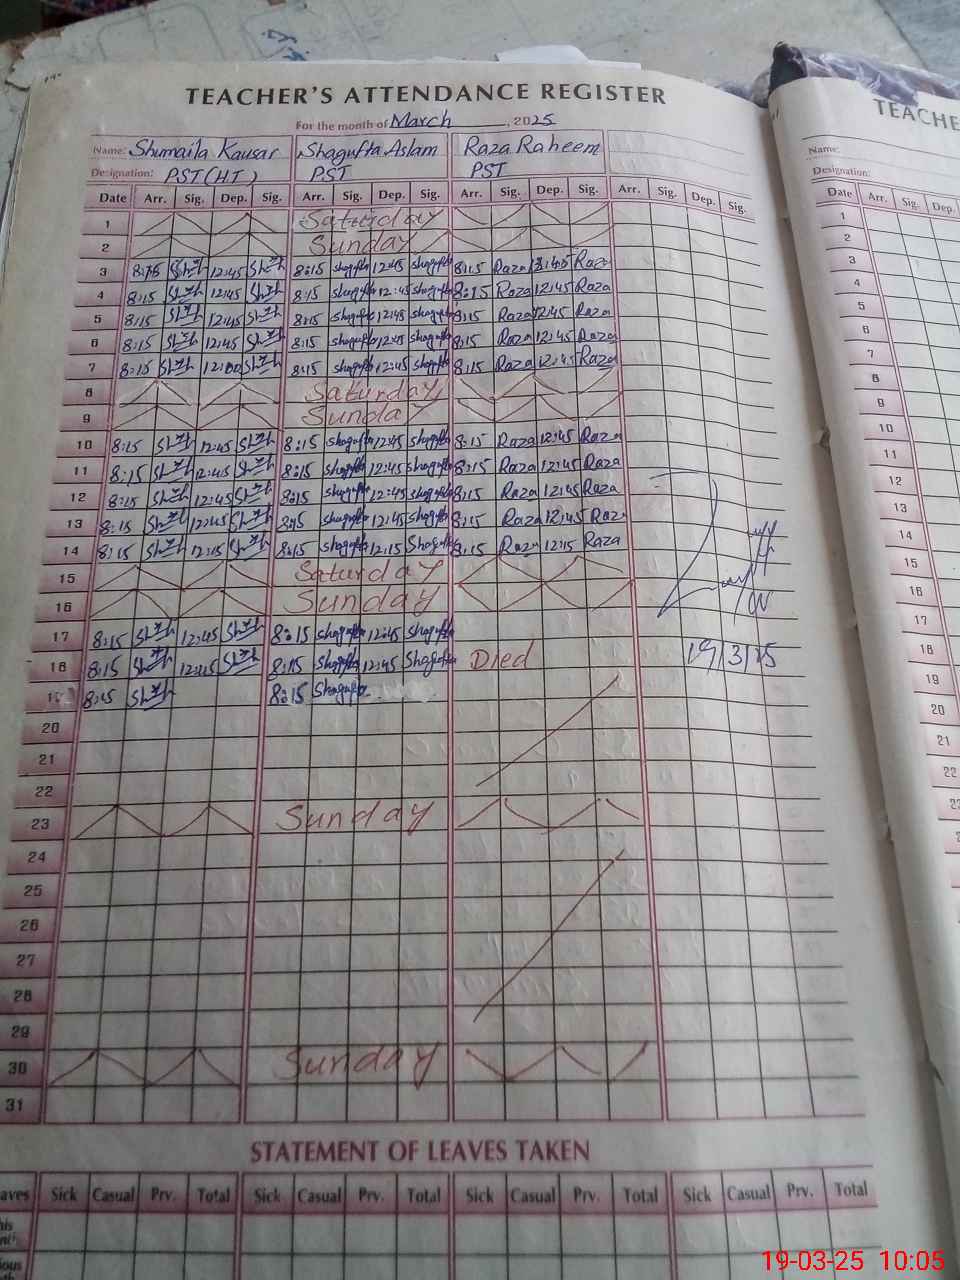 TEACHER'S ATTENDANCE REGISTER
For the month of March, 2025
Name: Shumaila Kausar Shagufta Aslam Raza Raheem
Designation: PST(HT) PST PST
Date Arr. Sig. Dep. Sig. Arr. Sig. Dep. Sig. Arr. Sig. Dep. Sig. Arr. Sig. Dep. Sig.
1 Saturday
2 Sunday
3 8:15 12:45 8:15 Shagufta 12:45 Shagufta 8:15 Raza 12:45 Raza
4 8:15 12:45 8:15 Shagufta 12:45 Shagufta 8:15 Raza 12:45 Raza
5 8:15 12:45 8:15 Shagufta 12:45 Shagufta 8:15 Raza 12:45 Raza
6 8:15 12:45 8:15 Shagufta 12:45 Shagufta 8:15 Raza 12:45 Raza
7 8:15 12:00 8:15 Shagufta 12:45 Shagufta 8:15 Raza 12:45 Raza
8 Saturday
9 Sunday
10 8:15 12:45 8:15 Shagufta 12:45 Shagufta 8:15 Raza 12:45 Raza
11 8:15 12:45 8:15 Shagufta 12:45 Shagufta 8:15 Raza 12:45 Raza
12 8:15 12:45 8:15 Shagufta 12:45 Shagufta 8:15 Raza 12:45 Raza
13 8:15 12:45 8:15 Shagufta 12:45 Shagufta 8:15 Raza 12:45 Raza
14 8:15 12:15 8:15 Shagufta 12:15 Shagufta 8:15 Raza 12:15 Raza
15 Saturday
16 Sunday
17 8:15 12:45 8:15 Shagufta 12:45 Shagufta
18 8:15 12:45 8:15 Shagufta 12:45 Shagufta Died 19/3/25
19 8:15 8:15 Shagufta
20
21
22
23 Sunday
24
25
26
27
28
29
30 Sunday
31
STATEMENT OF LEAVES TAKEN
Sick Casual Prv. Total Sick Casual Prv. Total Sick Casual Prv. Total Sick Casual Prv. Total
TEACHE
Name:
Designation:
Date Arr. Sig. Dep.
1
2
3
4
5
6
7
8
9
10
11
12
13
14
15
16
17
18
19
20
21
22
19-03-25 10:05